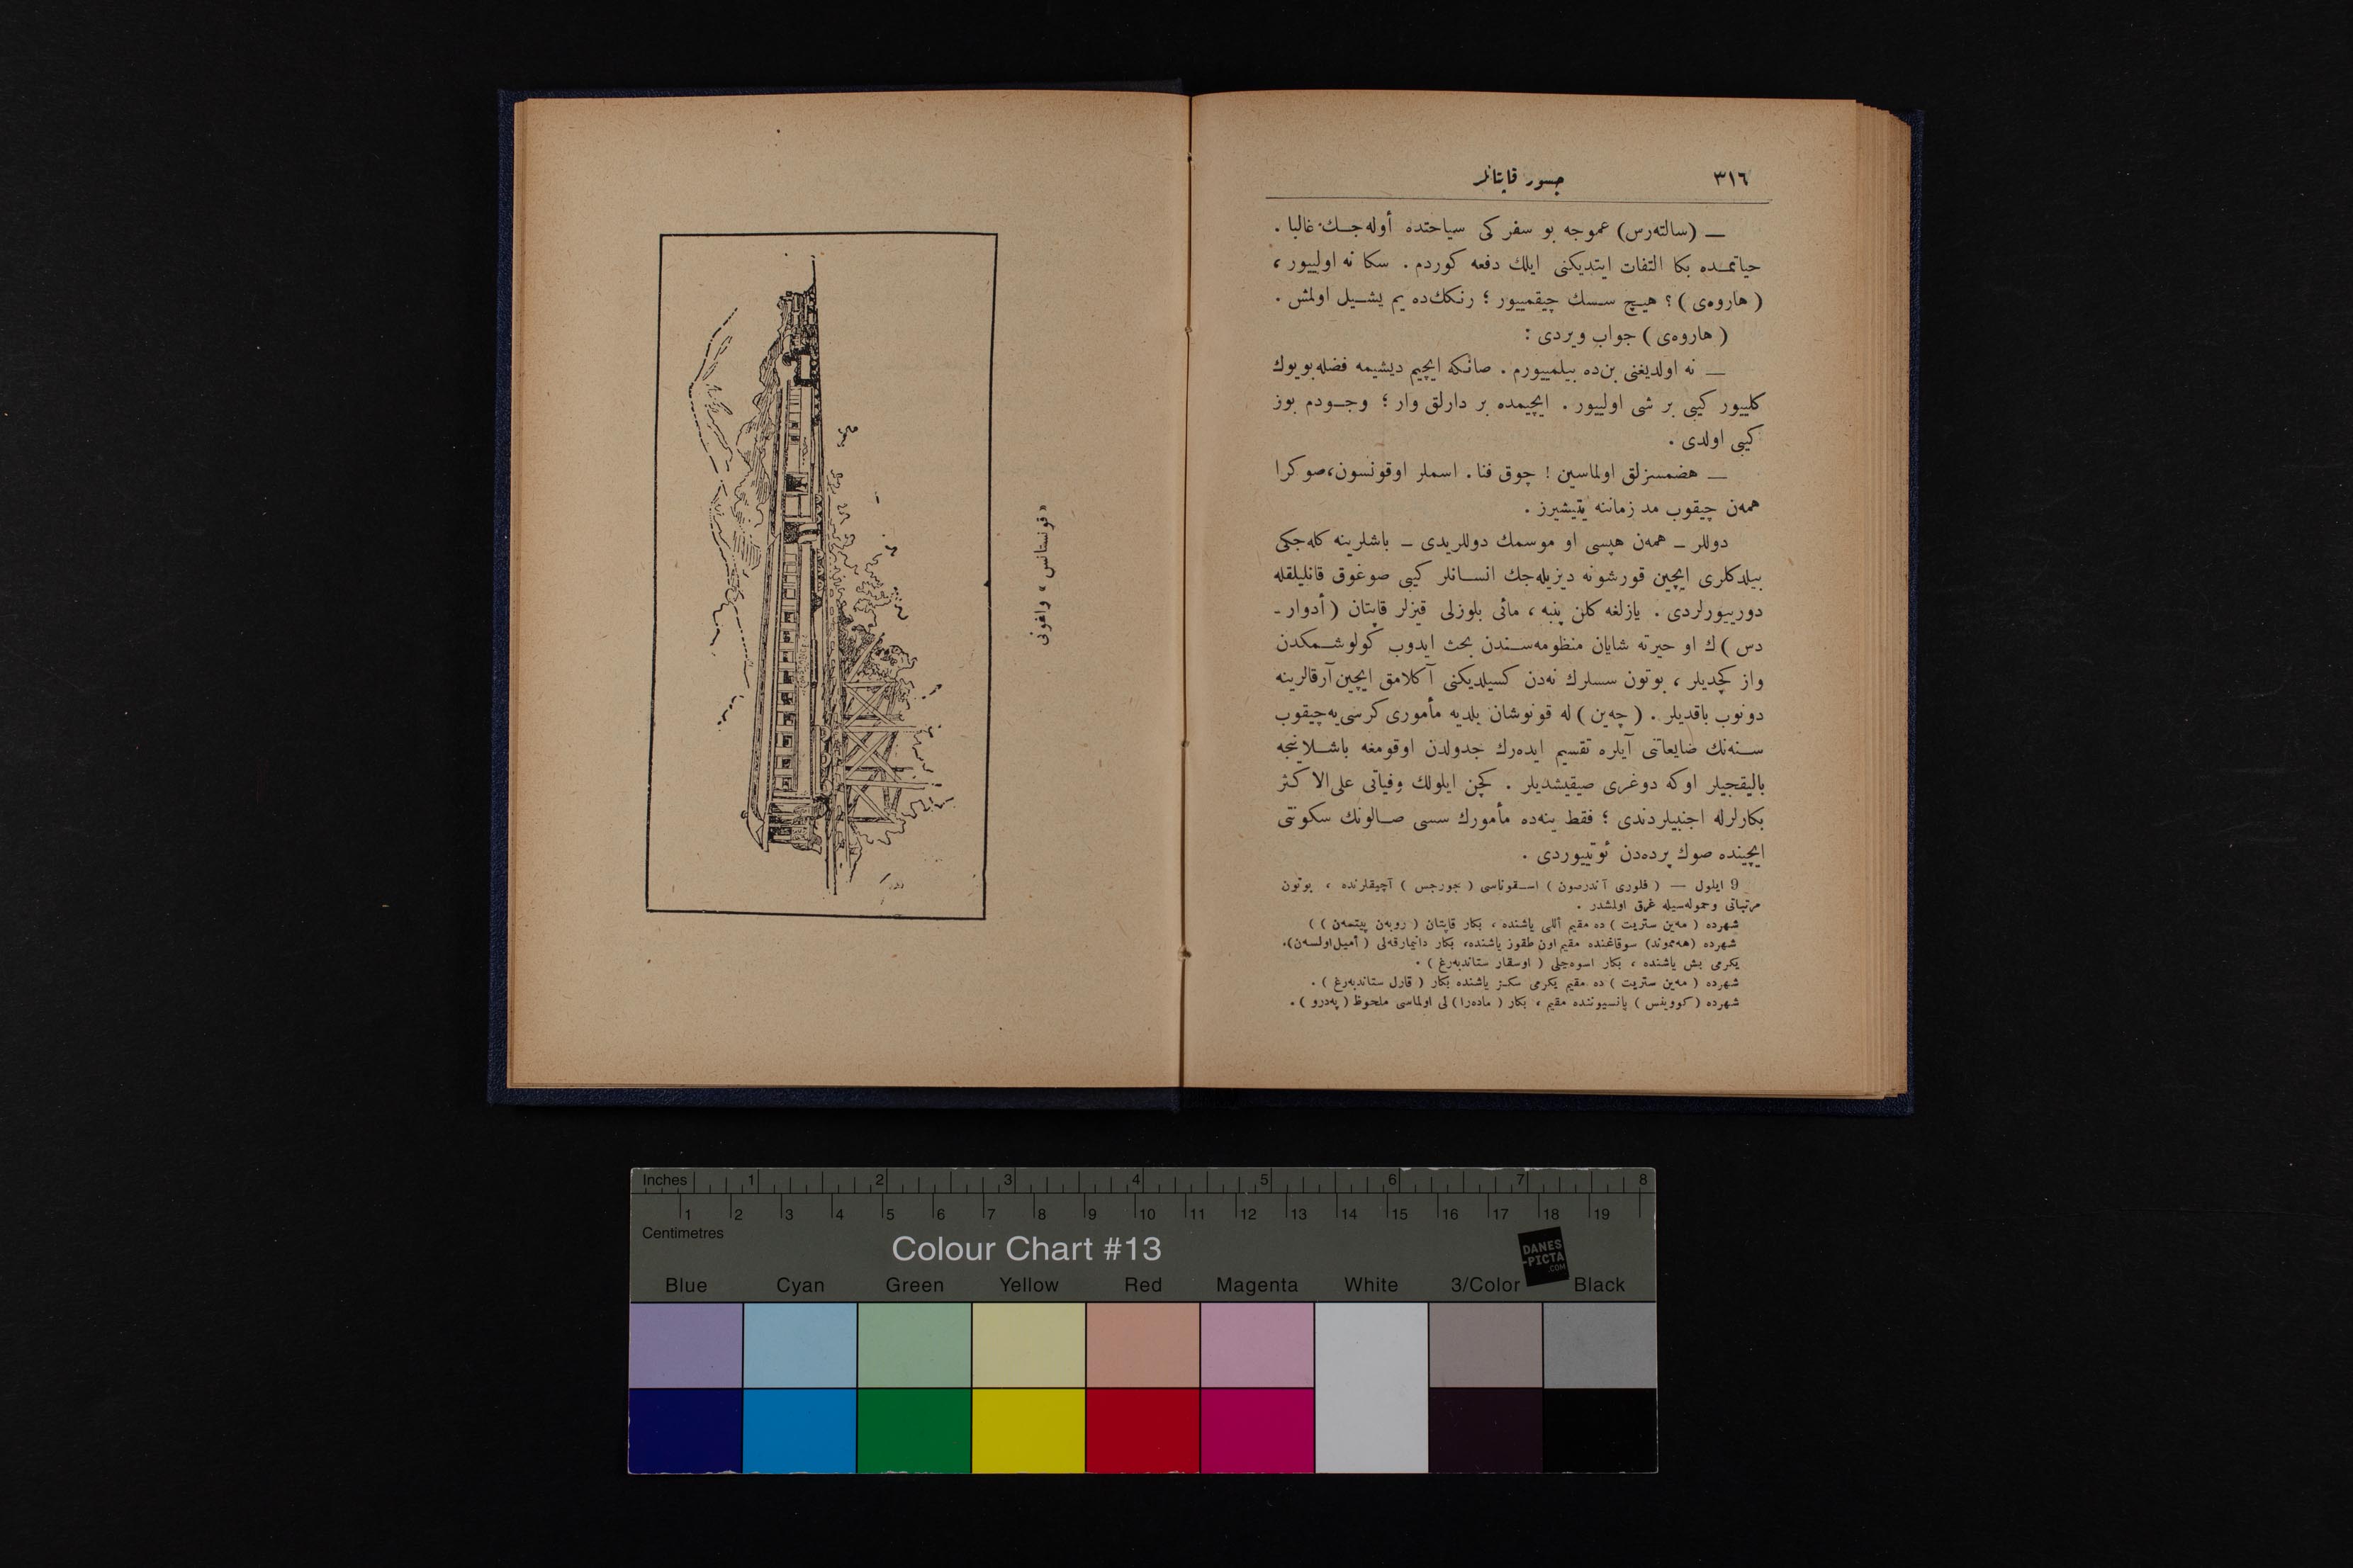 ٣١٦
جسور قاپتانلر
— (سالته‌رس) عموجه بو سفر كی سیاحتده أوله‌جـك غالبا .
حیاتمـده بكا التفات ایتدیكنی ایلك دفعه كوردم . سكا نه اولییور ،
( هاروه‌ی ) ؟ هیـچ سـسك چیقمییور ؛ رنـكك‌ده یم یشـیل اولمش .
( هاروه‌ی ) جواب ویردی :
— نه اولدیغنی بن‌ده بیلمییورم . صانـكه ایچیم دیشیمه فضله بویوك
كلییور كیبی بر شی اولییور . ایچیمده بر دارلق وار ؛ وجـودم بوز
كیبی اولدی .
— هضمسزلق اولماسین ! چوق فنا . اسملر اوقونسون، صوكرا
همه‌ن چیقوب مد زماننه یتیشیرز .
دوللر ــ همه‌ن هپسی او موسمك دوللریدی ــ باشلرینه كله‌جكی
بیلدكلری ایچین قورشونه دیزیله‌جك انسـانلر كیبی صوغوق قانلیلقله
دورییورلردی . یازلغه كلن پنبه ، مائی بلوزلی قیزلر قاپتان ( أدوار ـ
دس ) ك او حیرته شایان منظومه‌سـندن بحث ایدوب كولوشـمكدن
واز كچدیلر ، بوتون سسلرك نه‌دن كسیلدیكنی آكلامق ایچین آرقالرینه
دونوب باقدیلر . ( چه‌ین ) له قونوشان بلدیه مأموری كرسی‌یه چیقوب
سـنه‌نك ضایعاتنی آیلره تقسیم ایده‌رك جدولدن اوقومغه باشـلاینجه
بالیقجیلر اوكه دوغری صیقیشدیلر . كچن ایلولك وفیاتی علی‌الاكثر
بكارلرله اجنبیلردندی ؛ فقط ینه‌ده مأمورك سسی صـالونك سكوتی
ایچینده صوك پرده‌دن ئوتییوردی .
9 ایلول — ( فلوری آندرصون ) اسـقوناسی ( جورجس ) آچیقلرنده ، بوتون
مرتباتی وحموله‌سیله غرق اولمشدر .
شهرده ( مه‌ین ستریت ) ده مقیم أللی یاشنده ، بكار قاپتان ( روبه‌ن پیتمه‌ن ) )
شهرده (هه‌موند) سوقاغنده مقیم اون طقوز یاشنده، بكار دانیمارقه‌لی ( أمیل اولسه‌ن).
یكرمی بش یاشنده ، بكار اسوه‌جلی ( اوسقار ستاندبه‌رغ ) .
شهرده ( مه‌ین ستریت ) ده مقیم یكرمی سكـز یاشنده بكار ( قارل ستاندبه‌رغ ) .
شهرده ( كووینس ) پانسیوننده مقیم ، بكار ( ماده‌را ) لی اولماسی ملحوظ ( په‌درو ) .
«قونستانس» واغونی
Inches 1 2 3 4 5 6 7 8
1 2 3 4 5 6 7 8 9 10 11 12 13 14 15 16 17 18 19
Centimetres
Colour Chart #13
DANES
-PICTA
.COM
Blue Cyan Green Yellow Red Magenta White 3/Color Black